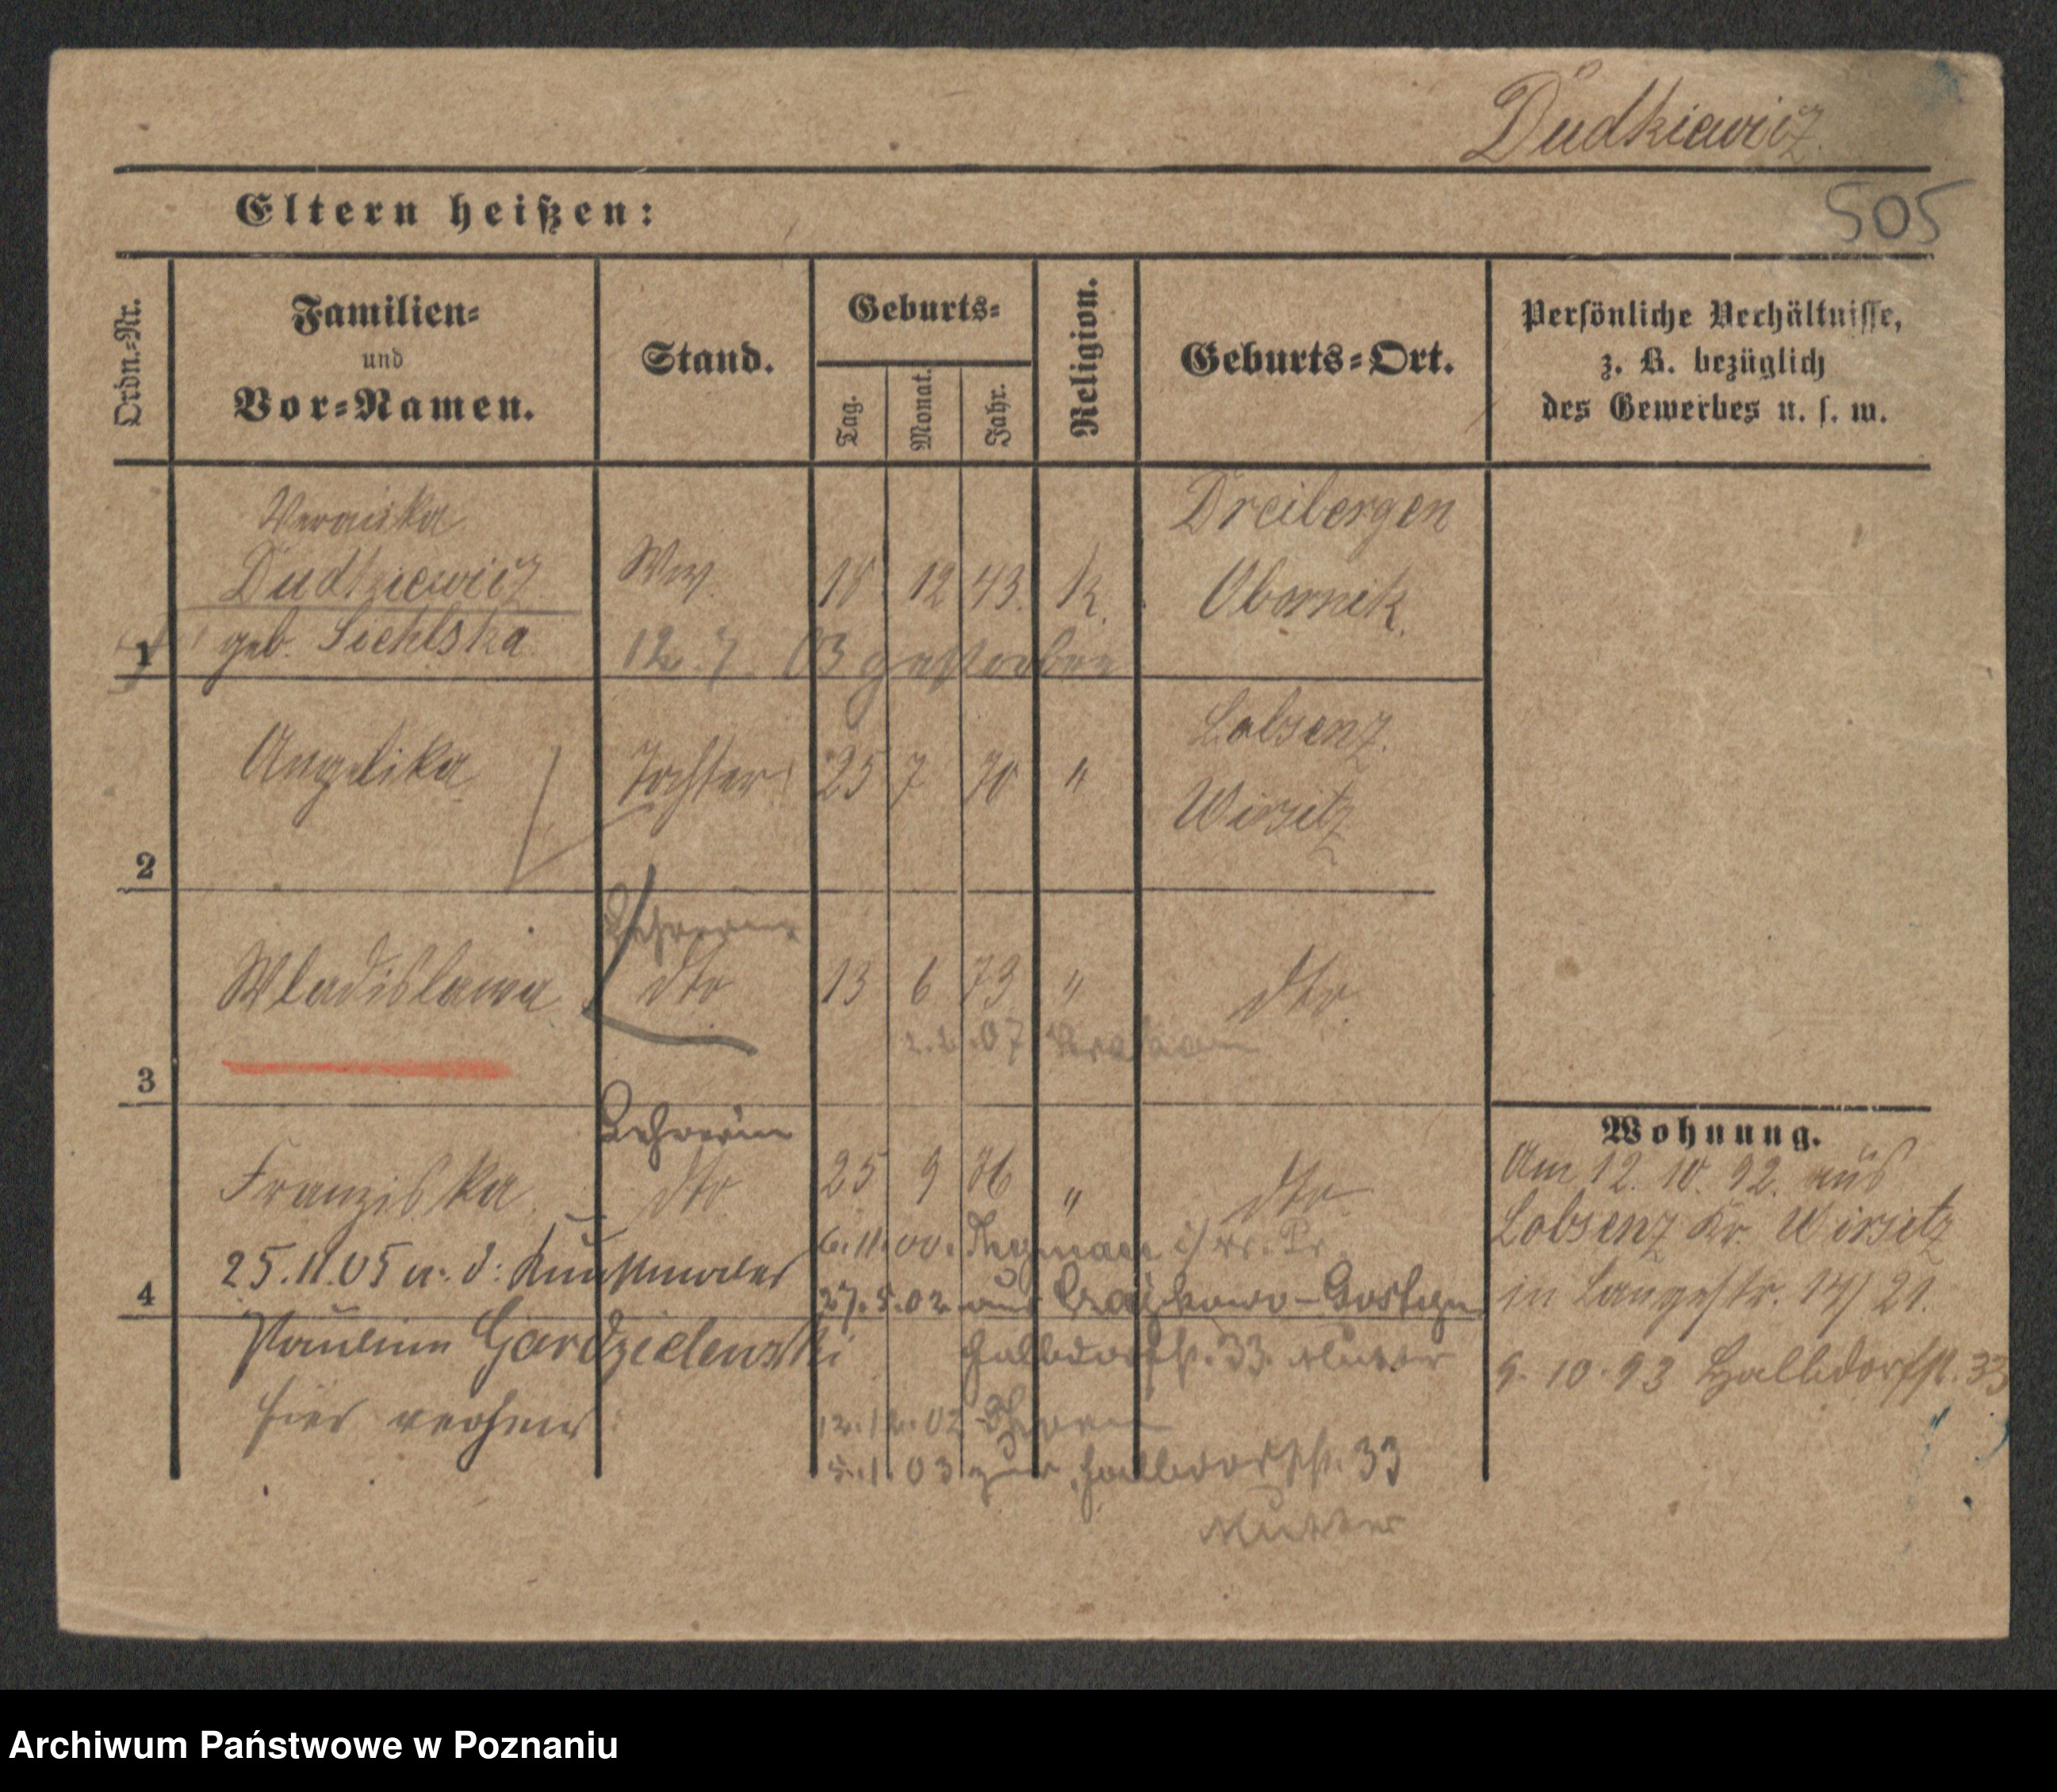 Dudkiewicz
505
Eltern heißen:
Ordn.-Nr.
Familien-
und
Vor-Namen.
Stand.
Geburts-
Tag.
Monat.
Jahr.
Religion.
Geburts-Ort.
Persönliche Verhältnisse,
z. B. bezüglich
des Gewerbes u. s. w.
1
Veronika
Dudkiewicz
geb.
Ww.
12 43. K.
Dreibergen
Obornik.
12. 7. 03 gestorben
2
Angelika
Tochter
25 7 70 "
Lobsenz.
Wirsitz
3
Wladislawa
Lehrerin
dto
13 6 73 "
dto.
2. 2. 07
4
Franziska
Lehrerin
dto
25 9 "
dto.
6. 11. 00.
25. 11. 05 a. d. Kunstmaler
27. 5. 02 aus
Paulin Gardzielewski
Halbdorfstr. 33 Mutter
hier verheir.
12. 12. 02
5. 1. 03 zur Halbdorfstr. 33
Mutter
Wohnung.
Am 12. 10. 92. aus
Lobsenz Kr. Wirsitz
in Langestr. 14/21.
9. 10. 93 Halbdorfstr. 33
Archiwum Państwowe w Poznaniu